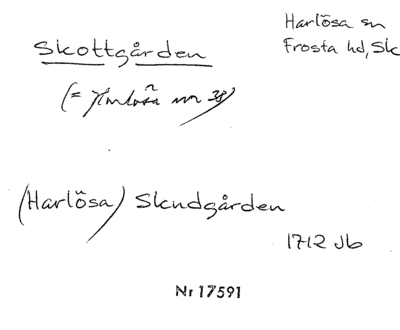 Harlösa sn
Skottgården
Frosta hd, Sk
(= Harlösa nr 38)
(Harlösa) Skndgården
1712 Jb
Nr 17591